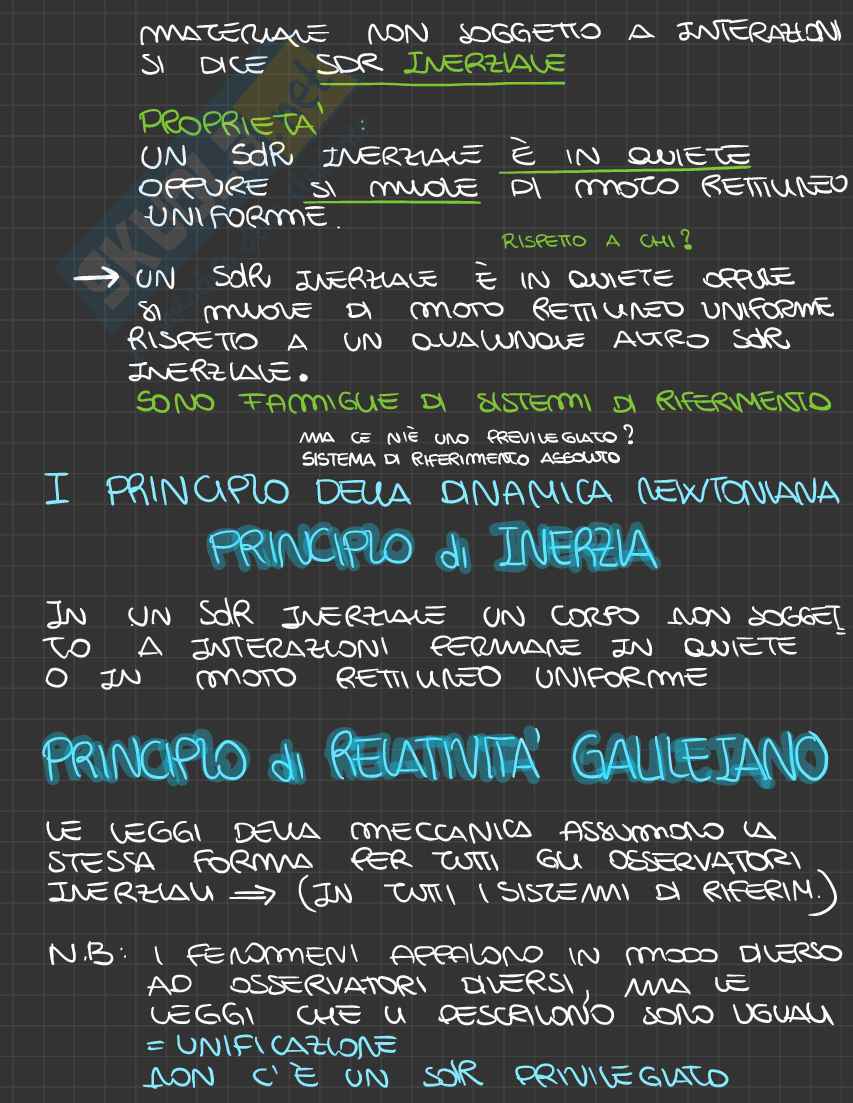 MATERIALE NON SOGGETTO A INTERAZIONI
SI DICE SDR INERZIALE
PROPRIETA' :
UN SdR INERZIALE È IN QUIETE
OPPURE SI MUOVE DI MOTO RETTILINEO
UNIFORME.
RISPETTO A CHI?
→ UN SdR INERZIALE È IN QUIETE OPPURE
SI MUOVE DI MOTO RETTILINEO UNIFORME
RISPETTO A UN QUALUNQUE ALTRO SdR
INERZIALE.
SONO FAMIGLIE DI SISTEMI DI RIFERIMENTO
MA CE N'È UNO PREVILEGIATO?
SISTEMA DI RIFERIMENTO ASSOLUTO
I PRINCIPIO DELLA DINAMICA NEWTONIANA
PRINCIPIO di INERZIA
IN UN SdR INERZIALE UN CORPO NON SOGGET
TO A INTERAZIONI PERMANE IN QUIETE
O IN MOTO RETTILINEO UNIFORME
PRINCIPIO di RELATIVITA' GALILEIANO
LE LEGGI DELLA MECCANICA ASSUMONO LA
STESSA FORMA PER TUTTI GLI OSSERVATORI
INERZIALI ⇒ (IN TUTTI I SISTEMI DI RIFERIM.)
N.B: I FENOMENI APPAIONO IN MODO DIVERSO
AD OSSERVATORI DIVERSI, MA LE
LEGGI CHE LI DESCRIVONO SONO UGUALI
= UNIFICAZIONE
NON C'È UN SdR PRIVILEGIATO